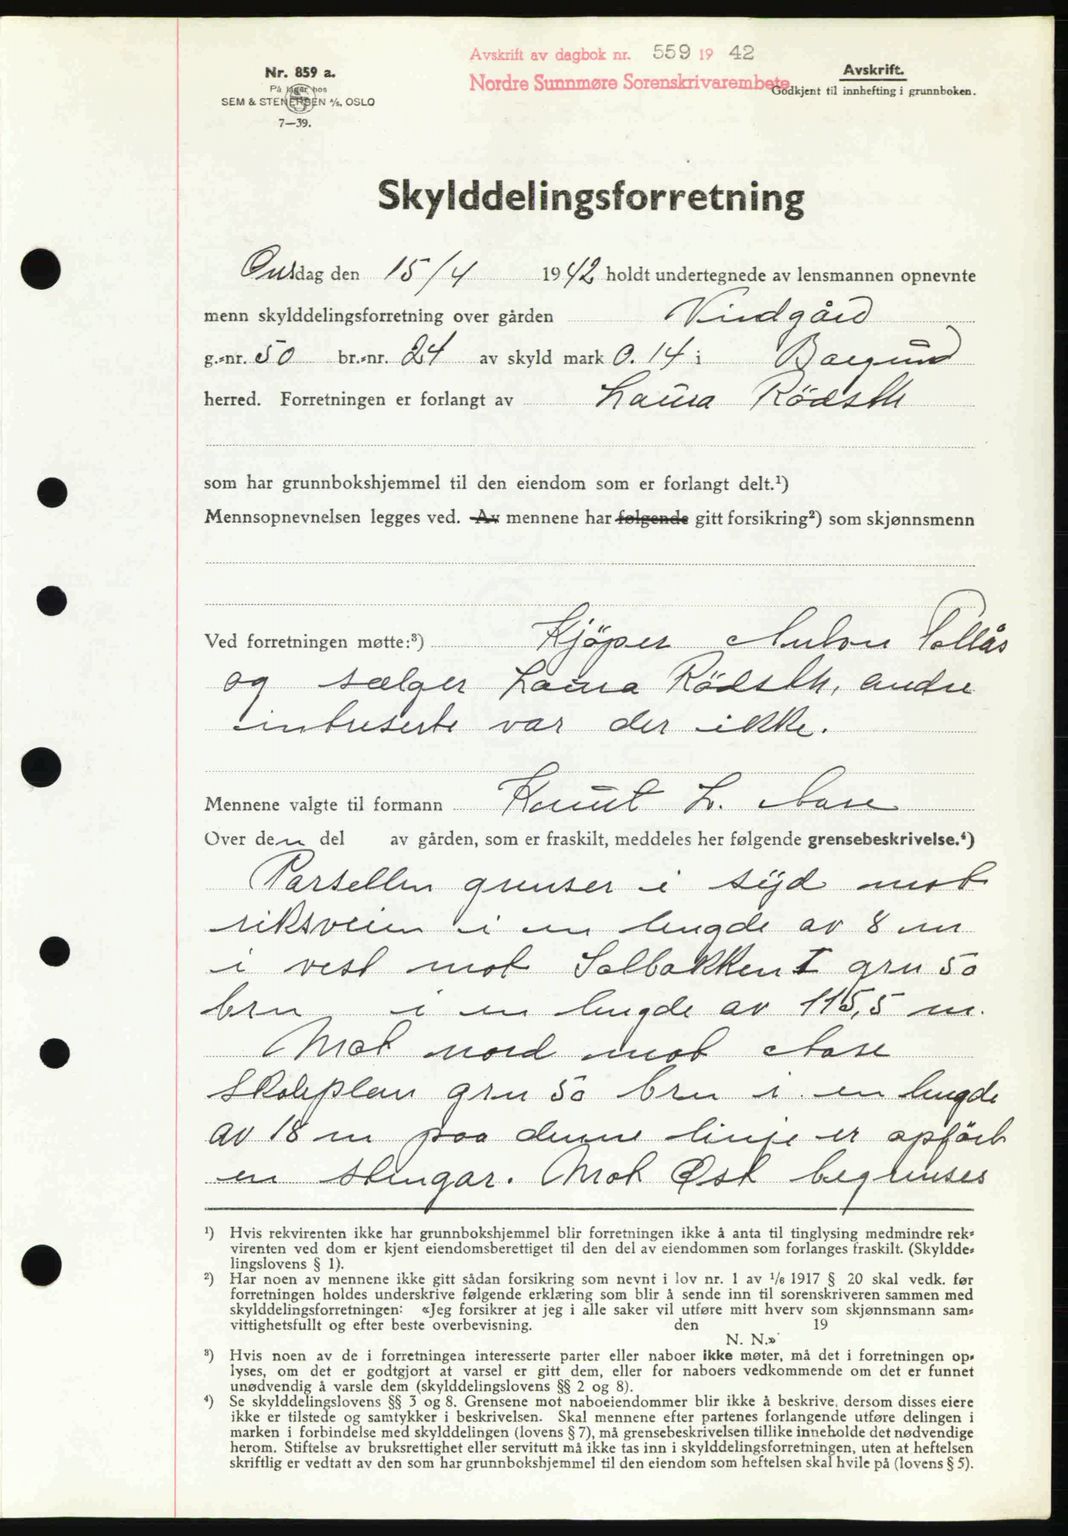 Avskrift av dagbok nr. 559 19 42
Nordre Sunnmøre Sorenskrivarembete
Nr. 859 a.
På lager hos
SEM & STENERSEN A/S, OSLO
7—39.
Avskrift.
Godkjent til innhefting i grunnboken.
Skylddelingsforretning
Onsdag den 15/4 1942 holdt undertegnede av lensmannen opnevnte
menn skylddelingsforretning over gården Vindgård
g.-nr. 50 br.-nr. 24 av skyld mark 0.14 i Borgund
herred. Forretningen er forlangt av Laura Rödseth
som har grunnbokshjemmel til den eiendom som er forlangt delt.¹)
Mennsopnevnelsen legges ved. Av mennene har følgende gitt forsikring²) som skjønnsmenn
Ved forretningen møtte:³) Kjöper Anton Tollås
og sælger Laura Rödseth, andre
intreserte var der ikke.
Mennene valgte til formann Knut L. Aase
Over den del av gården, som er fraskilt, meddeles her følgende grensebeskrivelse.⁴)
Parsellen grenser i syd mot
riksveien i en lengde av 8 m
i vest mot Solbakken I grn 50
brn i en lengde av 115,5 m.
Mot nord mot Aase
skoleplan grn 50 brn i en lengde
av 18 m paa denne linje er opfört
en stengar. Mot Øst begrenses
¹) Hvis rekvirenten ikke har grunnbokshjemmel blir forretningen ikke å anta til tinglysing medmindre rek-
virenten ved dom er kjent eiendomsberettiget til den del av eiendommen som forlanges fraskilt. (Skyldde-
lingslovens § 1).
²) Har noen av mennene ikke gitt sådan forsikring som nevnt i lov nr. 1 av 1/6 1917 § 20 skal vedk. før
forretningen holdes underskrive følgende erklæring som blir å sende inn til sorenskriveren sammen med
skylddelingsforretningen: «Jeg forsikrer at jeg i alle saker vil utføre mitt hverv som skjønnsmann sam-
vittighetsfullt og efter beste overbevisning. den 19
N. N.»
³) Hvis noen av de i forretningen interesserte parter eller naboer ikke møter, må det i forretningen op-
lyses, om det er godtgjort at varsel er gitt dem, eller for naboers vedkommende om det er funnet
unødvendig å varsle dem (skylddelingslovens §§ 2 og 8).
⁴) Se skylddelingslovens §§ 3 og 8. Grensene mot naboeiendommer blir ikke å beskrive, dersom disses eiere
ikke er tilstede og samtykker i beskrivelsen. Skal mennene efter partenes forlangende utføre delingen i
marken i forbindelse med skylddelingen (lovens § 7), må grensebeskrivelsen tillike inneholde det nødvendige
herom. Stiftelse av bruksrettighet eller servitutt må ikke tas inn i skylddelingsforretningen, uten at heftelsen
skriftlig er vedtatt av den som har grunnbokshjemmel til den eiendom som heftelsen skal hvile på (lovens § 5).